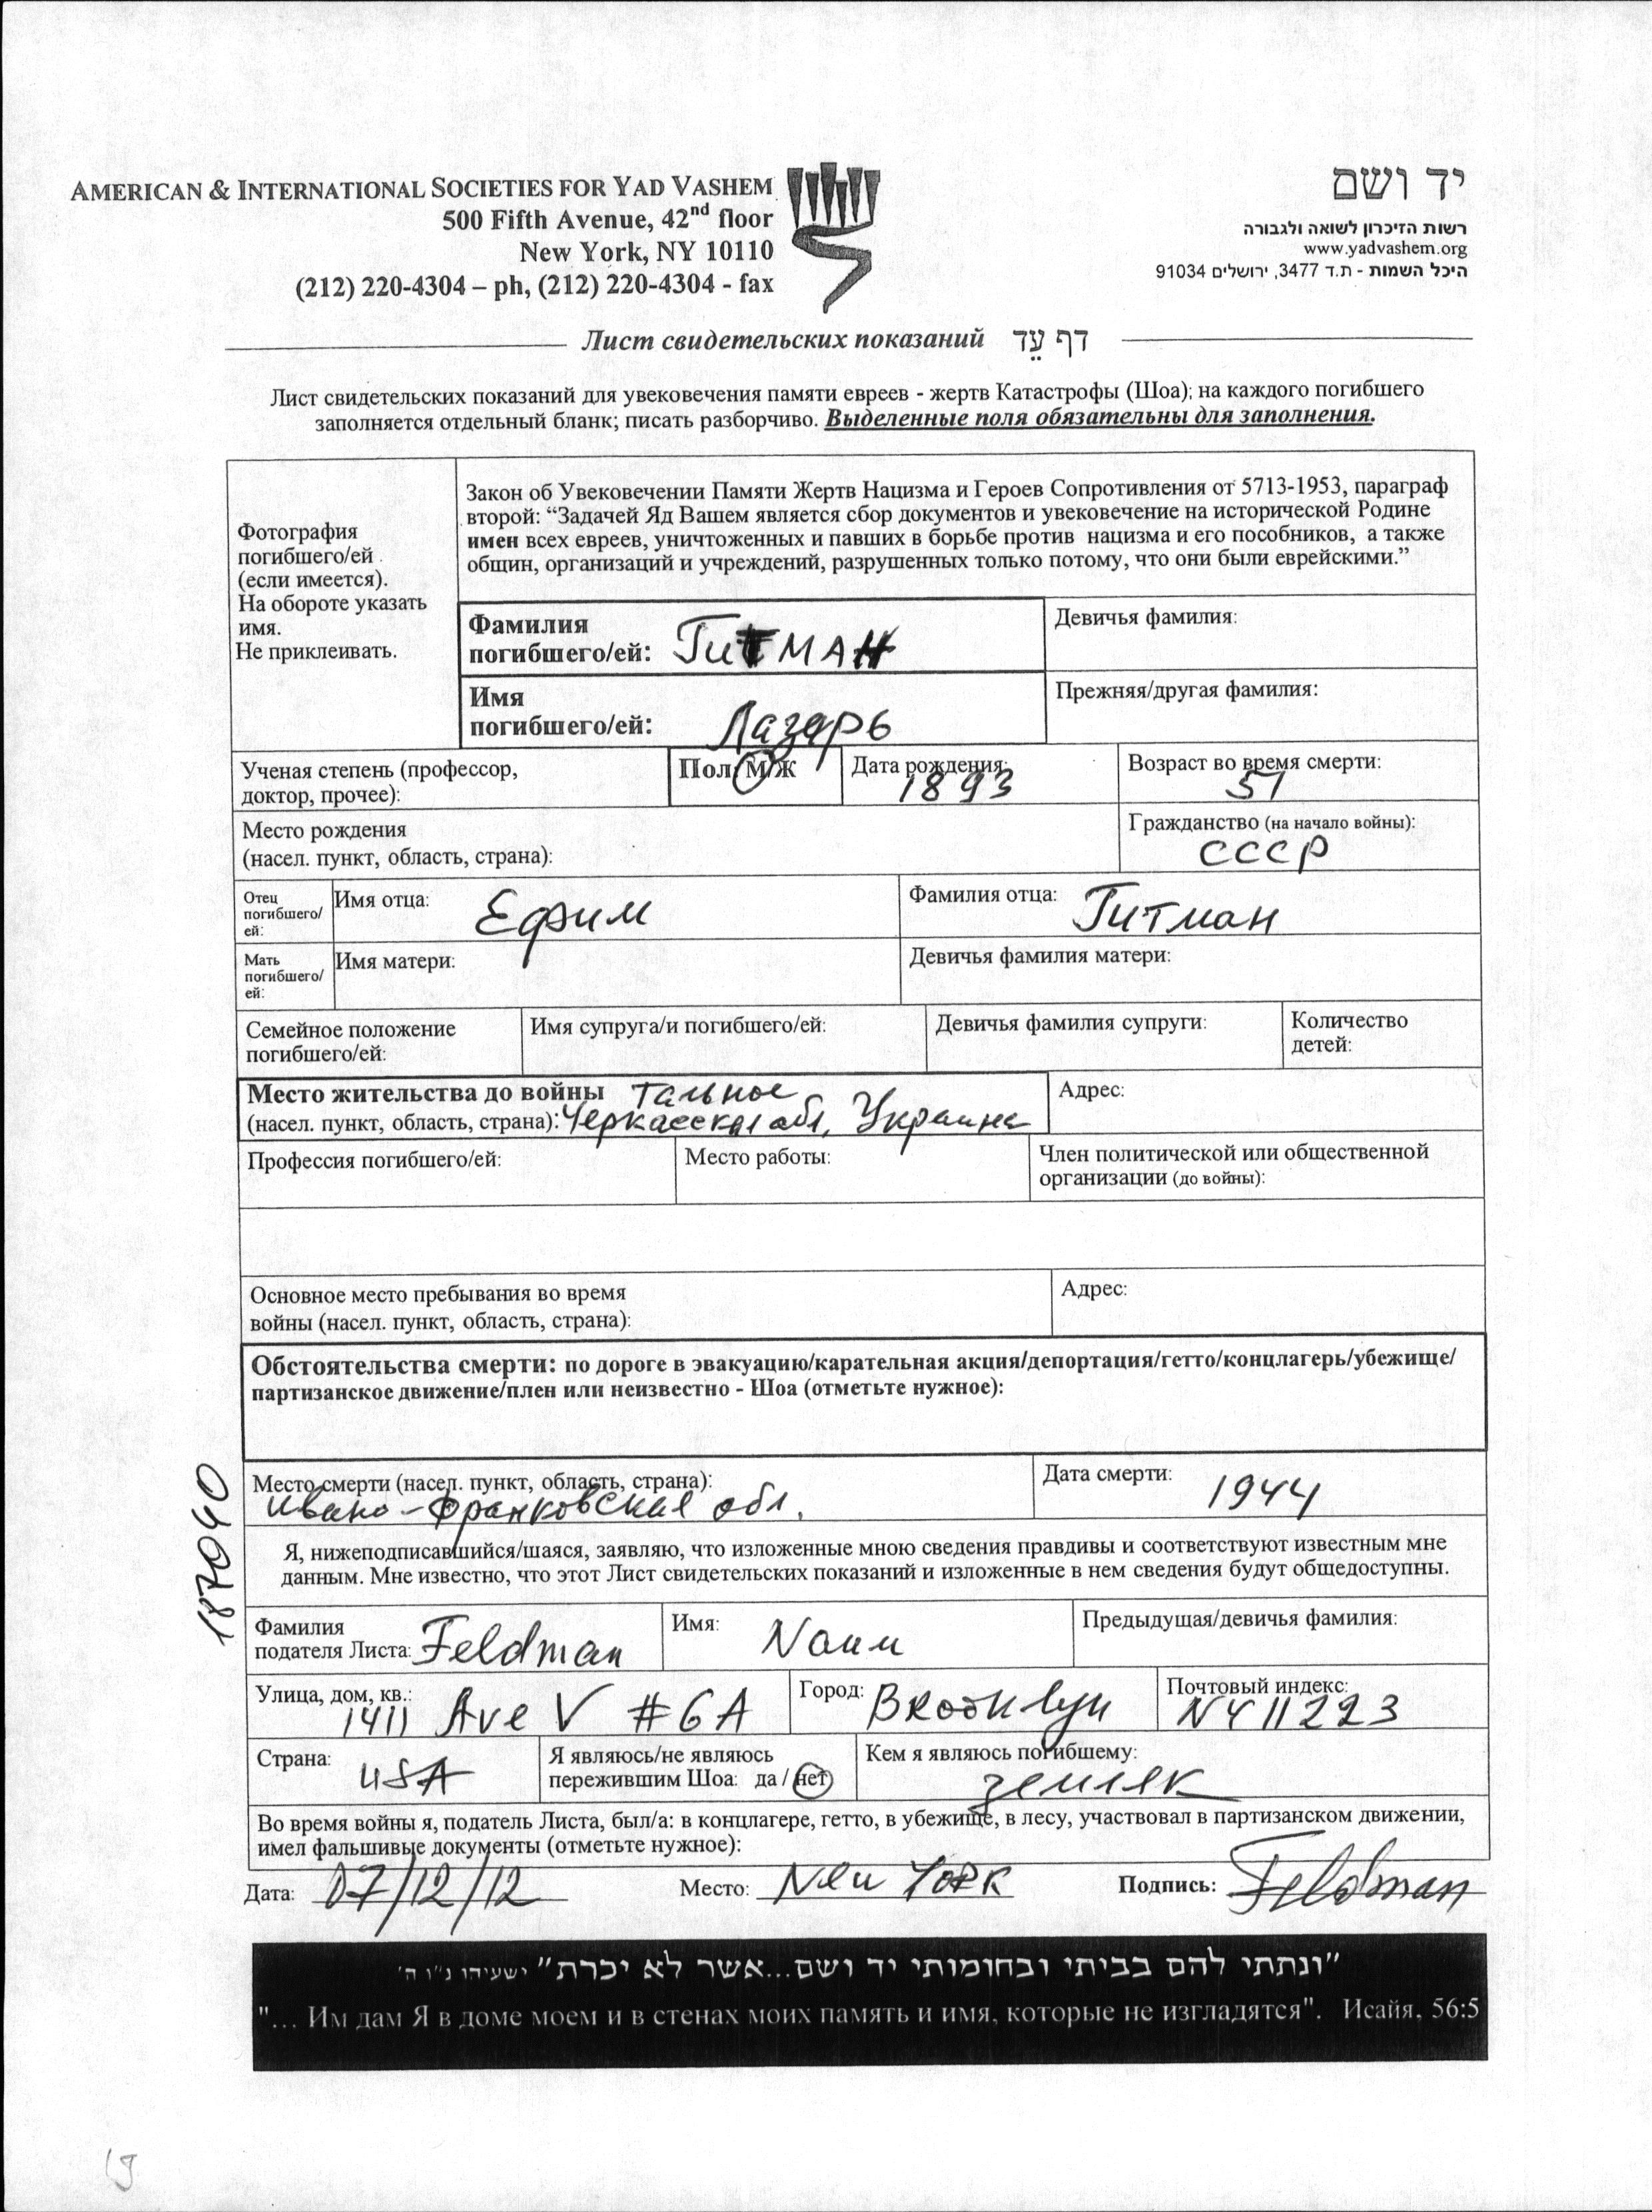 AMERICAN & INTERNATIONAL SOCIETIES FOR YAD VASHEM
500 Fifth Avenue, 42nd floor
New York, NY 10110
(212) 220-4304 – ph, (212) 220-4304 - fax
יד ושם
רשות הזיכרון לשואה ולגבורה
www.yadvashem.org
היכל השמות - ת.ד 3477, ירושלים 91034
Лист свидетельских показаний דף עֵד
Лист свидетельских показаний для увековечения памяти евреев - жертв Катастрофы (Шоа); на каждого погибшего
заполняется отдельный бланк; писать разборчиво. Выделенные поля обязательны для заполнения.
Фотография
погибшего/ей
(если имеется).
На обороте указать
имя.
Не приклеивать.
Закон об Увековечении Памяти Жертв Нацизма и Героев Сопротивления от 5713-1953, параграф
второй: “Задачей Яд Вашем является сбор документов и увековечение на исторической Родине
имен всех евреев, уничтоженных и павших в борьбе против нацизма и его пособников, а также
общин, организаций и учреждений, разрушенных только потому, что они были еврейскими.”
Фамилия
погибшего/ей: Гитман
Девичья фамилия:
Имя
погибшего/ей: Лазарь
Прежняя/другая фамилия:
Ученая степень (профессор,
доктор, прочее):
Пол: М/Ж
Дата рождения:
1893
Возраст во время смерти:
51
Место рождения
(насел. пункт, область, страна):
Гражданство (на начало войны):
СССР
Отец
погибшего/
ей:
Имя отца: Ефим
Фамилия отца: Гитман
Мать
погибшего/
ей:
Имя матери:
Девичья фамилия матери:
Семейное положение
погибшего/ей:
Имя супруга/и погибшего/ей:
Девичья фамилия супруги:
Количество
детей:
Место жительства до войны Тальное
(насел. пункт, область, страна): Черкасская обл, Украина
Адрес:
Профессия погибшего/ей:
Место работы:
Член политической или общественной
организации (до войны):
Основное место пребывания во время
войны (насел. пункт, область, страна):
Адрес:
Обстоятельства смерти: по дороге в эвакуацию/карательная акция/депортация/гетто/концлагерь/убежище/
партизанское движение/плен или неизвестно - Шоа (отметьте нужное):
Место смерти (насел. пункт, область, страна):
Ивано-Франковская обл.
Дата смерти: 1944
187040
Я, нижеподписавшийся/шаяся, заявляю, что изложенные мною сведения правдивы и соответствуют известным мне
данным. Мне известно, что этот Лист свидетельских показаний и изложенные в нем сведения будут общедоступны.
Фамилия
подателя Листа: Feldman
Имя: Naum
Предыдущая/девичья фамилия:
Улица, дом, кв.:
1411 Ave V #6A
Город: Brooklyn
Почтовый индекс:
NY 11223
Страна: USA
Я являюсь/не являюсь
пережившим Шоа: да / нет
Кем я являюсь погибшему:
земляк
Во время войны я, податель Листа, был/а: в концлагере, гетто, в убежище, в лесу, участвовал в партизанском движении,
имел фальшивые документы (отметьте нужное):
Дата: 07/12/12 Место: New York Подпись: Feldman
"ונתתי להם בביתי ובחומותי יד ושם...אשר לא יכרת" ישעיהו נ"ו ה'
"... Им дам Я в доме моем и в стенах моих память и имя, которые не изгладятся". Исайя, 56:5